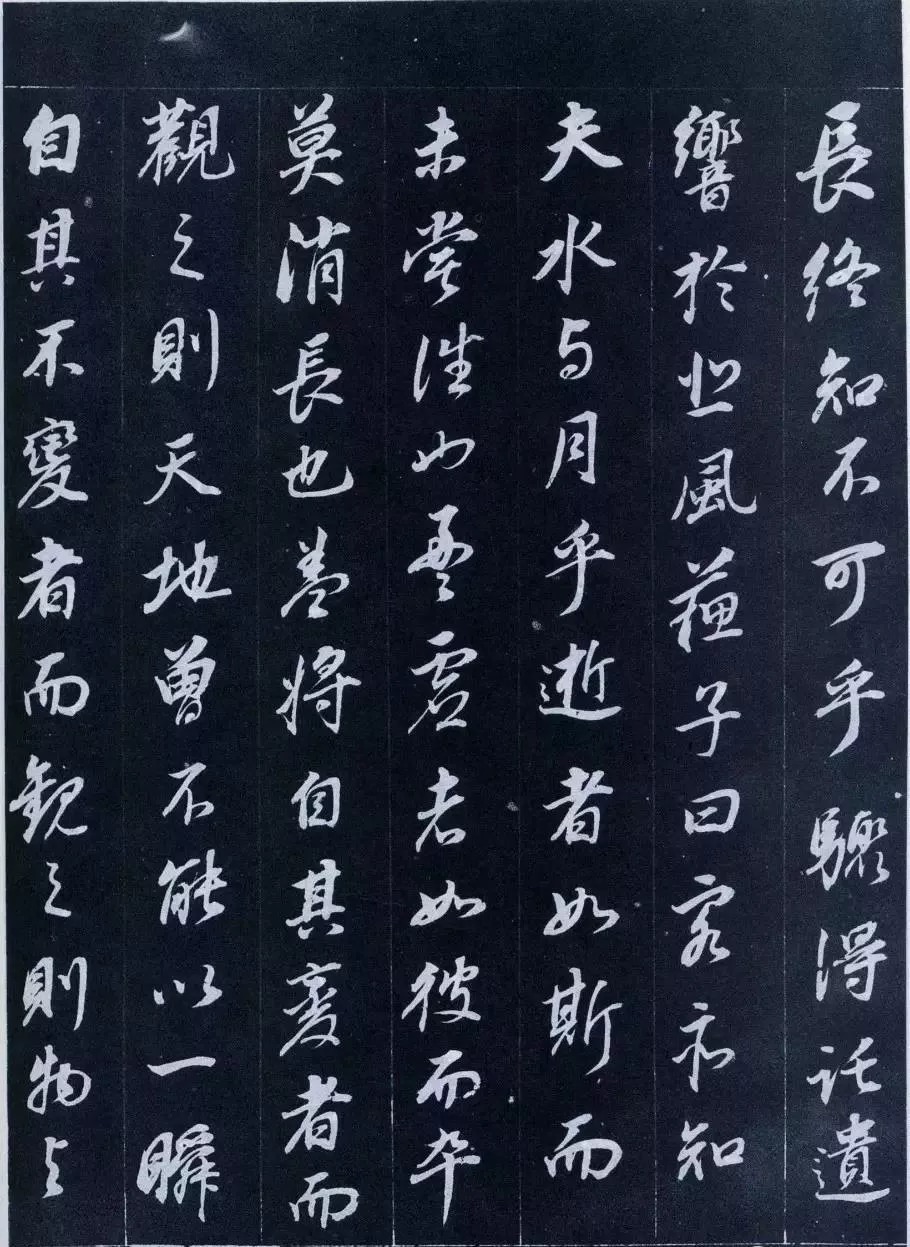 長終知不可乎驟得託遺
響於悲風蘓子曰客亦知
夫水与月乎逝者如斯而
未嘗往也盈虛者如彼而卒
莫消長也盖將自其變者而
觀之則天地曾不能以一瞬
自其不變者而觀之則物与